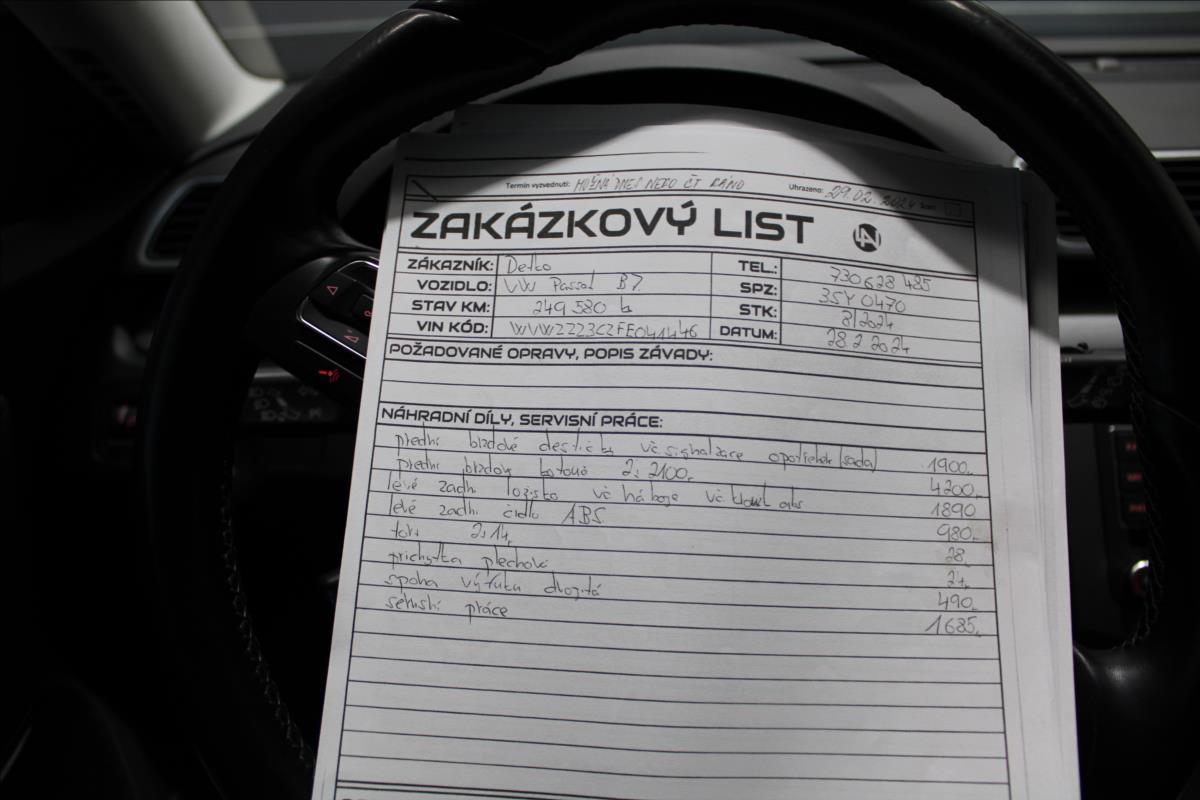 Termín vyzvednutí: MOŽNÁ DNES NEBO ČT RÁNO Uhrazeno: 29.02.2024
ZAKÁZKOVÝ LIST
ZÁKAZNÍK: Detko TEL.: 730628485
VOZIDLO: VW Passat B7 SPZ: 3SY 0470
STAV KM: 249 580 STK: 8/2024
VIN KÓD: WVWZZZ3CZFE041446 DATUM: 28 2 2024
POŽADOVANÉ OPRAVY, POPIS ZÁVADY:
NÁHRADNÍ DÍLY, SERVISNÍ PRÁCE:
přední brzdové destičky vč signalizace opotřeb (sada) 1900,-
přední brzdový kotouč 2x 2100,- 4200,-
levé zadní ložisko vč náboje vč abs 1890
levé zadní čidlo ABS 980,-
torx 2x14,- 28,-
příchytka plechová 24,-
spona výfuku dvojitá 490,-
servisní práce 1685,-